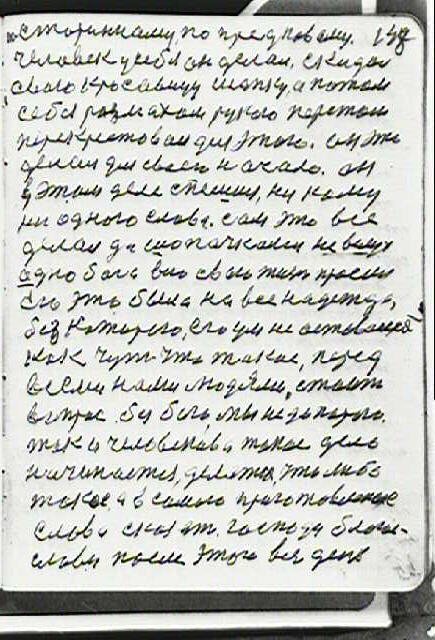 старинному, по предковому. 148
человек у себя он делал, скидал
свою красавицу шапку, а потом
себя размахом рукою перстом
перекрестовал для этого. он это
делал для своего начала. он
в этом деле спешил, ни кому
ни одного слова. сам это все
делал да шопачками не вслух
одно бога ... свою ... просил
его это была на все надежда,
без которого, его ум не оставался
как чуть-что такое, перед
всеми нами людьми, стоит
вопрос. без бога, мы не до порога.
так и человеково такое дело
начинается, делается, это либо
такое, а в самого приготовленное
слово сказать. господи благо-
слови после этого все дела